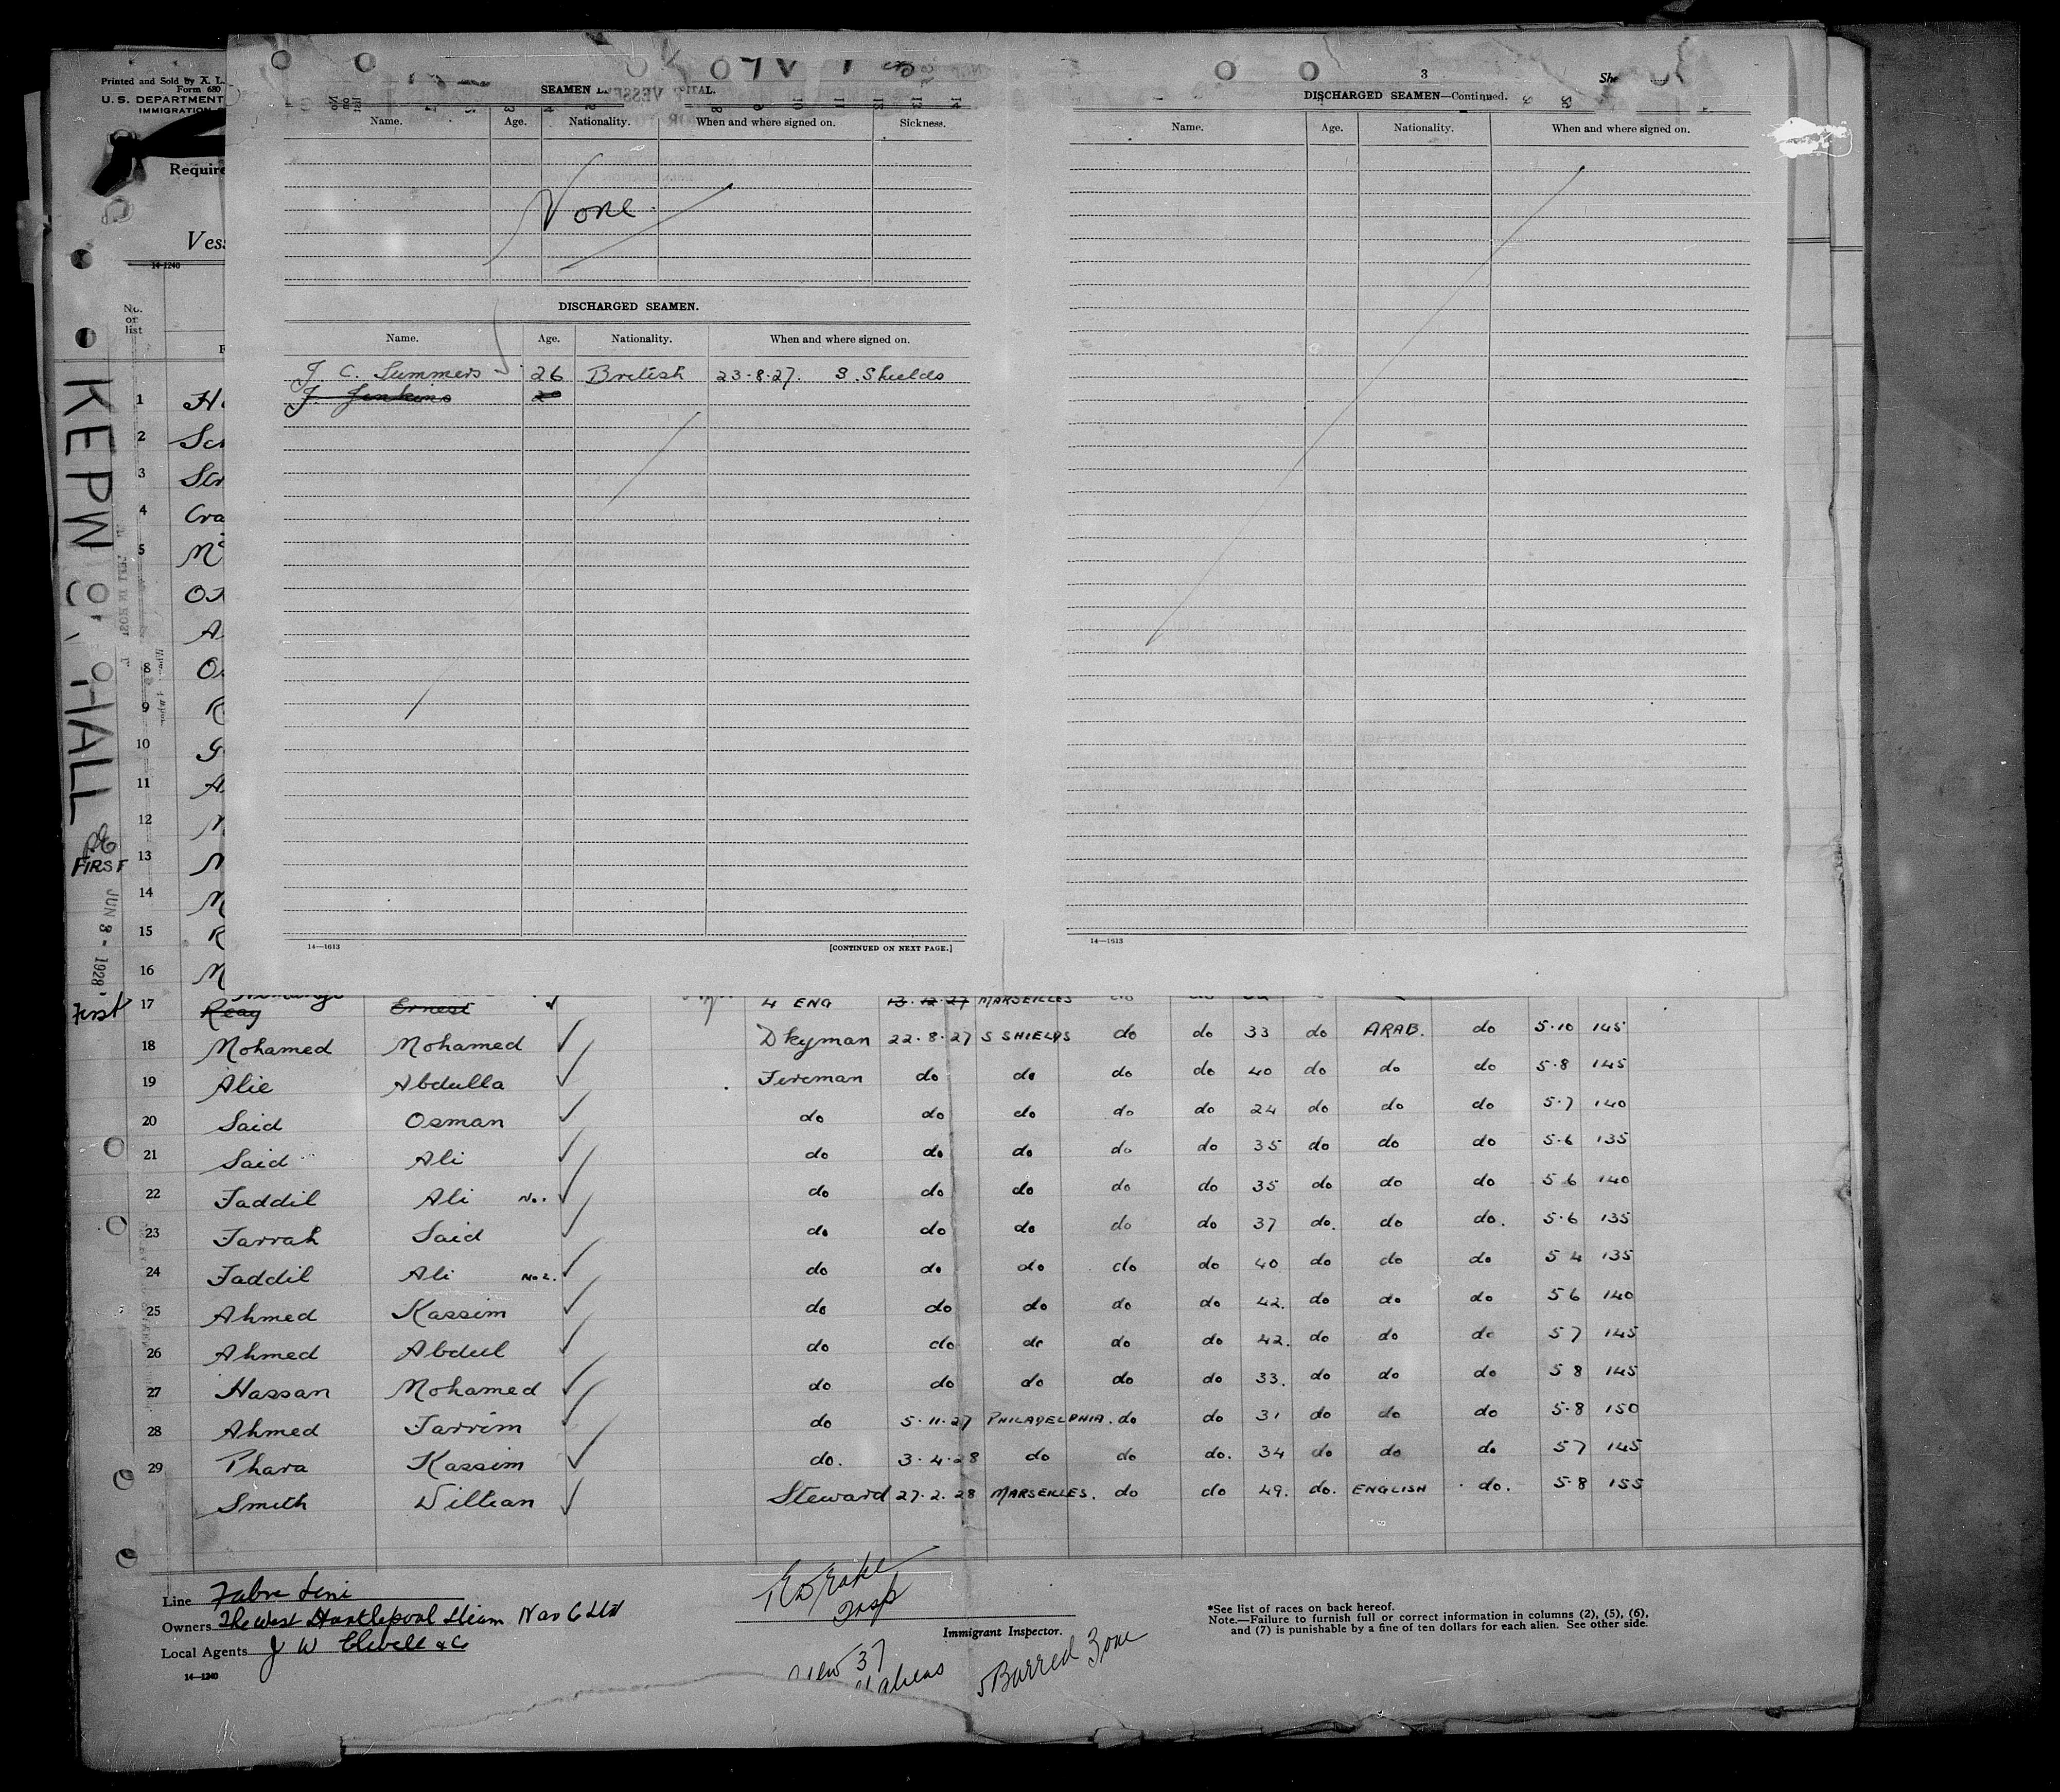 Printed and Sold by A. L.
Form 680
U.S. DEPARTMENT
IMMIGRATION
Require
Vess
14-1240
No.
on
list
KEPW HALL
FIRST
JUN 3 - 1928
First
SEAMEN
Name. Age. Nationality. When and where signed on. Sickness.
None
DISCHARGED SEAMEN.
Name. Age. Nationality. When and where signed on.
J C. Summers 26 British 23·8·27. S. Shields
J. Jenkins
14—1613 [CONTINUED ON NEXT PAGE.]
3
DISCHARGED SEAMEN—Continued.
Name. Age. Nationality. When and where signed on.
14—1613
1
2
3
4 Cra
5
8
9
10
11
12
13
14
15
16
17 Reay Ernest 4 ENG 13.12.27 MARSEILLES
18 Mohamed Mohamed Dkyman 22.8.27 S SHIELDS do do 33 do ARAB. do 5·10 145
19 Alie Abdulla Fireman do do do do 40 do do do 5·8 145
20 Said Osman do do do do do 24 do do do 5·7 140
21 Said Ali do do do do do 35 do do do 5·6 135
22 Faddil Ali No. do do do do do 35 do do do 5 6 140
23 Farrah Said do do do do do 37 do. do do. 5·6 135
24 Faddil Ali No 2. do do do do do 40 do do do 5 4 135
25 Ahmed Kassim do do do do do 42. do do do 5 6 140
26 Ahmed Abdul do do do do do 42. do do do 5 7 145
27 Hassan Mohamed do do do do do 33. do do do 5 8 145
28 Ahmed Farrim do 5·11·27 PHILADELPHIA. do do 31 do do do 5·8 150
29 Thara Kassim do. 3·4·28 do do do. 34 do do do 5 7 145
Smith William Steward 27.2.28 MARSEILLES. do do 49. do. ENGLISH do. 5·8 155
Line Fabre Line
Owners The West Hartlepool Steam Nav Co Ltd
Local Agents J W Elwell & Co
14—1240
Insp
Immigrant Inspector.
37
5 Barred Zone
*See list of races on back hereof.
Note.—Failure to furnish full or correct information in columns (2), (5), (6),
and (7) is punishable by a fine of ten dollars for each alien. See other side.